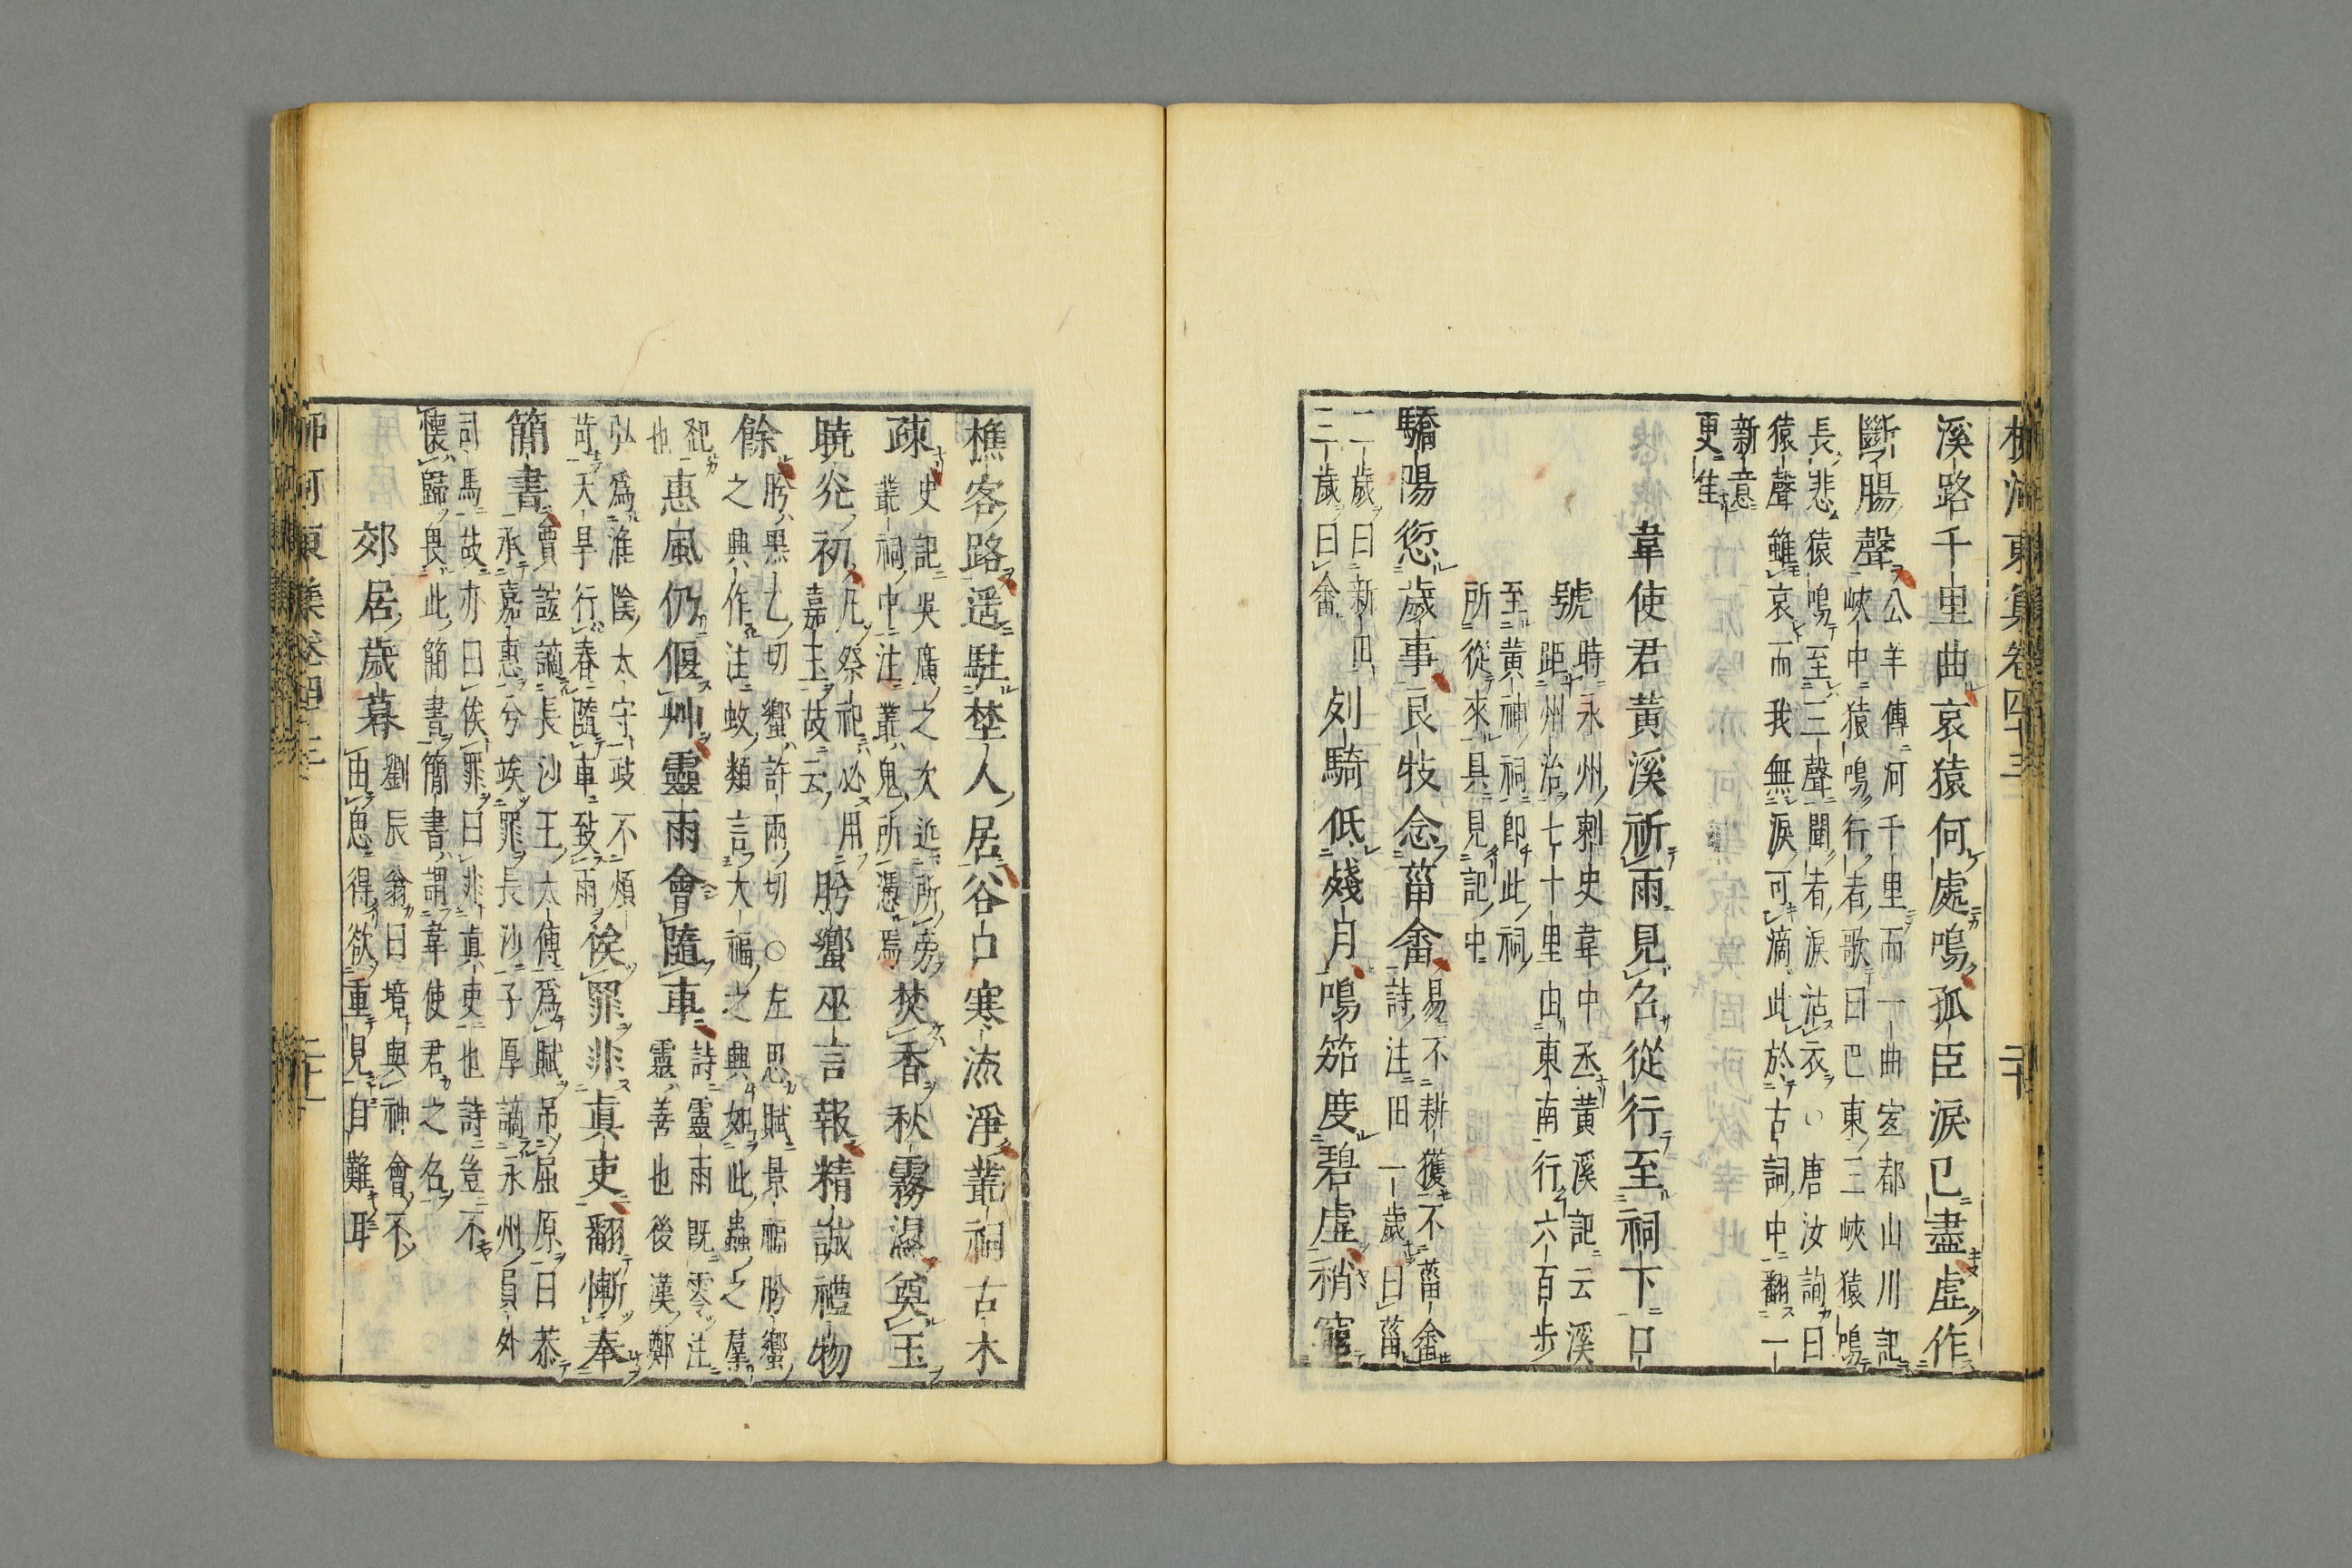 柳河東集卷四十三 二十
溪路千里曲哀猿何處鳴孤臣淚已盡虛作
斷腸聲
公羊傳河千里而一曲宻都山川記
峽中猿鳴行者歌曰巴東三峽猿鳴
長悲猿鳴至三聲聞者淚沾衣○唐汝詢曰
猿聲雖哀而我無淚可滴此於古詞中翻一
新意
更生
韋使君黃溪祈雨見召從行至祠下口
號
時永州刺史韋中丞黃溪記云溪
距州治七十里由東南行六百步
至黃神祠即此祠
所從來具見記中
驕陽愆歲事良牧念菑畬
易不耕穫不菑畬
詩注田一歲曰菑
二歲曰新田
三歲曰畬
列騎低殘月鳴笳度碧虛稍窮
樵客路遥駐埜人居谷口寒流淨叢祠古木
疎
史記吳廣之次近所旁
叢祠中注叢鬼所憑焉
焚香秋霧濕奠玉
曉光初
凡祭祀必用
嘉玉故云
肹蠁巫言報精誠禮物
餘
肹黑乙切蠁許兩切○左思賦景福肹蠁
之興作注蚊類言大福之興如此蟲之羣
起
也
惠風仍偃艸靈雨會隨車
詩靈雨既零注
靈善也後漢鄭
弘爲淮陰太守政不煩
苛天旱行春隨車致雨
俟罪非真吏翻慚奉
簡書
賈誼謫長沙王太傅爲賦吊屈原曰恭
承嘉惠兮竢罪長沙子厚謫永州員外
司馬故亦曰俟罪曰非真吏也詩豈不
懷歸畏此簡書簡書謂韋使君之召
郊居歲暮
劉辰翁曰境與神會不
由思得欲重見自難耳
柳河東集卷四十三